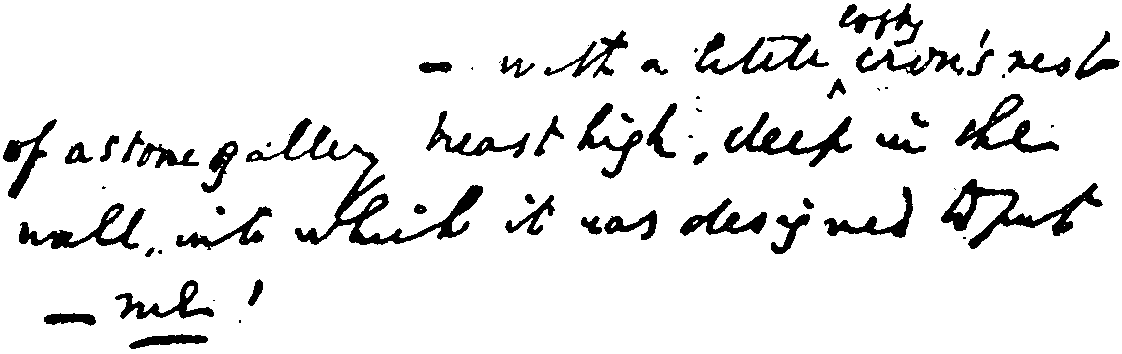 — with a little lofty crow's nest
of a stone gallery breast high, deep in the
wall, into which it was designed to put
— me!